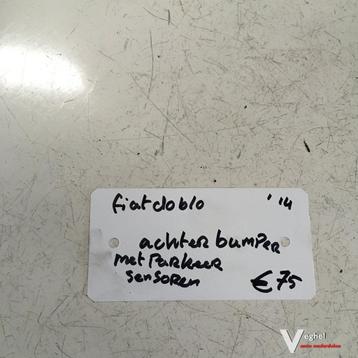 fiat doblo '14
achter bumper
met Parkeer
sensoren €75
Veghel